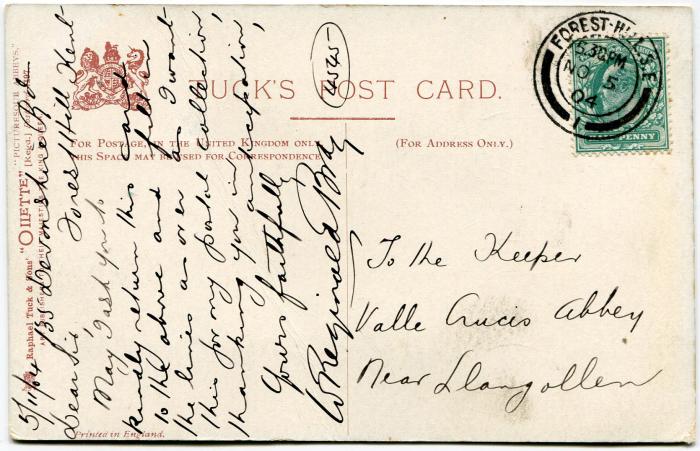 TUCK'S POST CARD.
FOR POSTAGE, IN THE UNITED KINGDOM ONLY,
THIS SPACE MAY BE USED FOR CORRESPONDENCE.
(FOR ADDRESS ONLY.)
Raphael Tuck & Sons' "OILETTE" (Regd.)
"PICTURESQUE ABBEYS."
Printed in England.
FOREST-HILL S.E
5.30PM
NO 5
04
1
PENNY
4545
5/11/04 135 Devonshire Rd
Forest Hill Kent
Dear Sir
May I ask you to
kindly return this card
to the above and fill in
the lines as over as I want
this for my postal collection,
thanking you in anticipation,
Yours faithfully
W Reginald Bray
To the Keeper
Valle Crucis Abbey
Near Llangollen